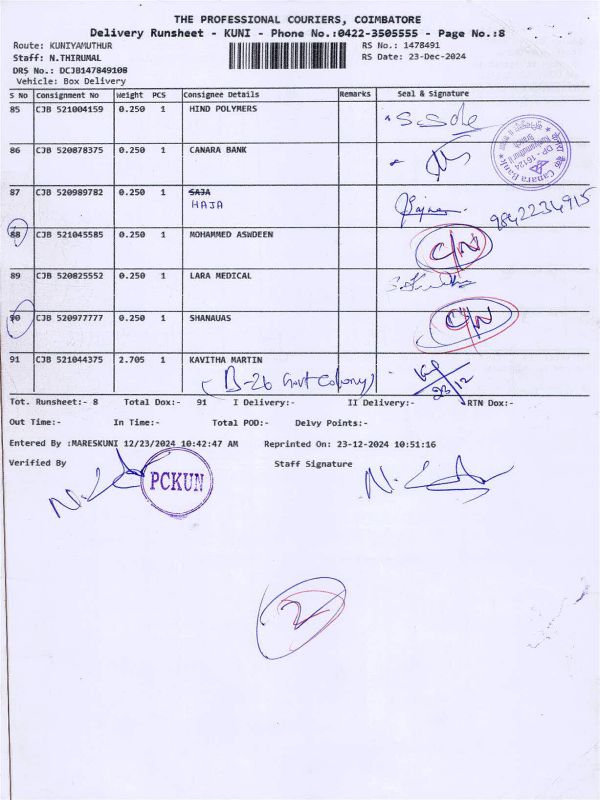 THE PROFESSIONAL COURIERS, COIMBATORE
Delivery Runsheet - KUNI - Phone No.:0422-3505555 - Page No.:8
Route: KUNIYAMUTHUR RS No.: 1478491
Staff: N.THIRUMAL RS Date: 23-Dec-2024
DRS No.: DCJB147849108
Vehicle: Box Delivery
S No Consignment No Weight PCS Consignee Details Remarks Seal & Signature
85 CJB 521004159 0.250 1 HIND POLYMERS
86 CJB 520878375 0.250 1 CANARA BANK
Canara Bank
DP-16124
87 CJB 520989782 0.250 1 SAJA
HAJA
9842234915
88 CJB 521045585 0.250 1 MOHAMMED ASWDEEN C/N
89 CJB 520825552 0.250 1 LARA MEDICAL
90 CJB 520977777 0.250 1 SHANAUAS C/N
91 CJB 521044375 2.705 1 KAVITHA MARTIN
(B-26 Govt Colony) 23/12
Tot. Runsheet:- 8 Total Dox:- 91 I Delivery:- II Delivery:- RTN Dox:-
Out Time:- In Time:- Total POD:- Delvy Points:-
Entered By :MARESKUNI 12/23/2024 10:42:47 AM Reprinted On: 23-12-2024 10:51:16
Verified By Staff Signature
PCKUN
2